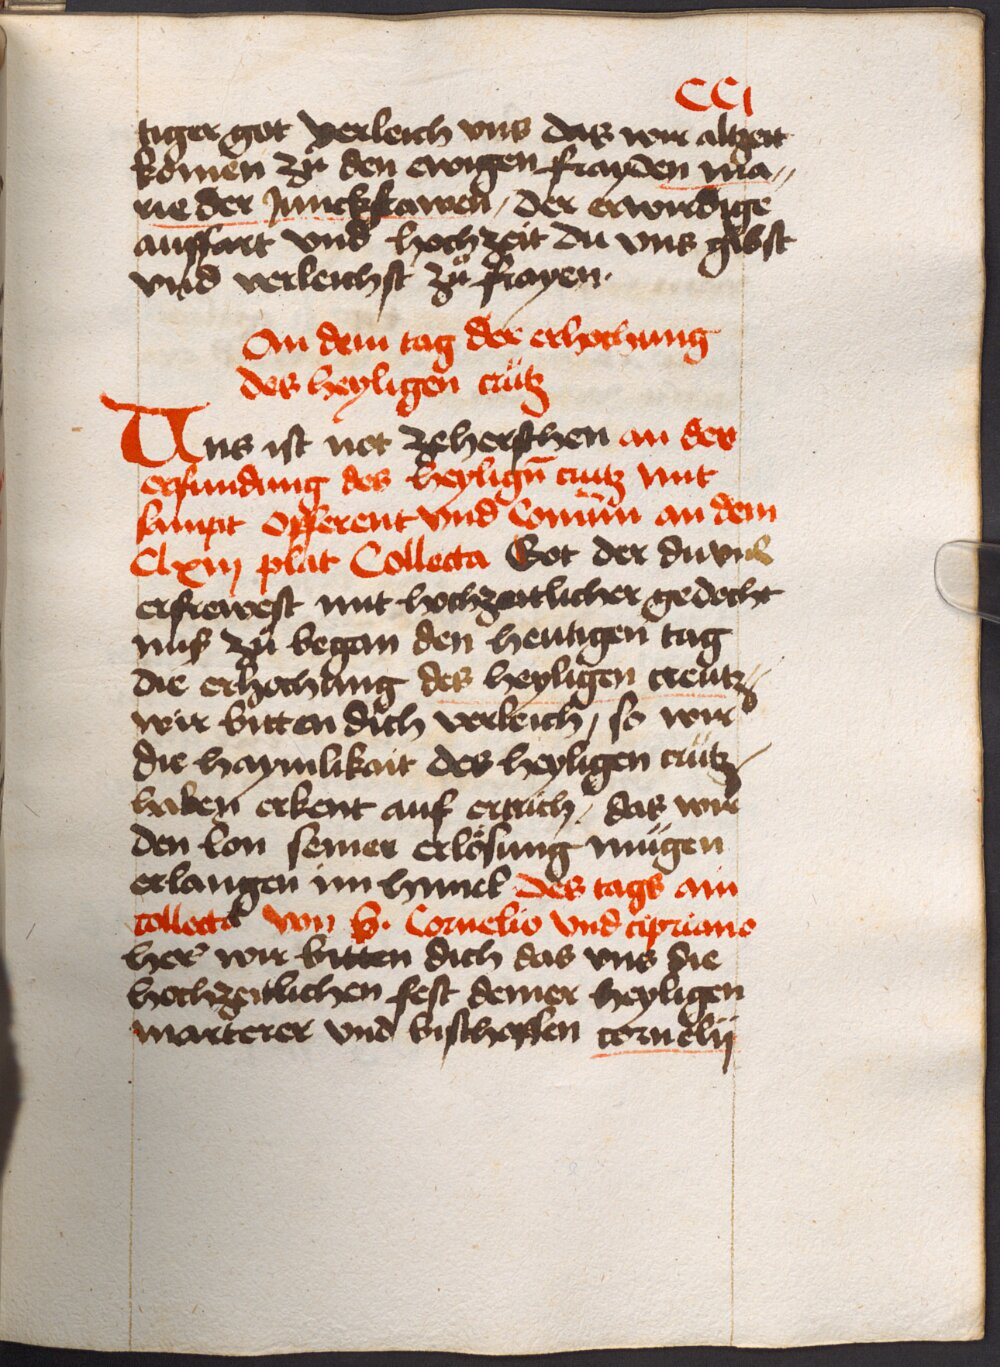 CCj
tiger got verleich vns das wir altzeit
komen zu den ewigen frayden ma//
rie der Junckfrawen / der erwirdige
auffart vnd hochzeit du vns gibst
vnd verleichst zů frayen.
An dem tag der erhochung
des heyligen crütz
Uns ist not zeherschen an der
erfundung des heyligñ crütz mit
sampt Offerent vnd Comũm an dem
Clxiij plat Collecta Got der du vns
erfrewest mit hochzeitlicher gedecht
nus zů began den heutigen tag
die erhochung des heyligen creutz//
wir bitten dich verleich / so wir
die haymlikait des heyligen crütz /
haben erkent auf ertrich / das wir
den lon seiner erlösung mügen
erlangen im himel des tags ain
collecta von S. Cornelio vnd cipriano
her wir bitten dich das vns die
hochzeitlichen fest deiner heyligen
marterer vnd bischoffen cornelij